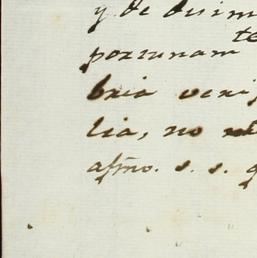 y de disim
te
portunam
bria veri
lia, no
afmo. s. s. q